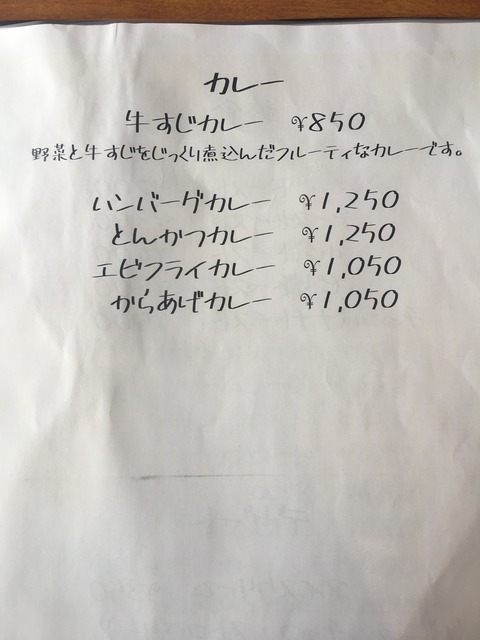 カレー
牛すじカレー ¥850
野菜と牛すじをじっくり煮込んだフルーティなカレーです。
ハンバーグカレー ¥1,250
とんかつカレー ¥1,250
エビフライカレー ¥1,050
からあげカレー ¥1,050